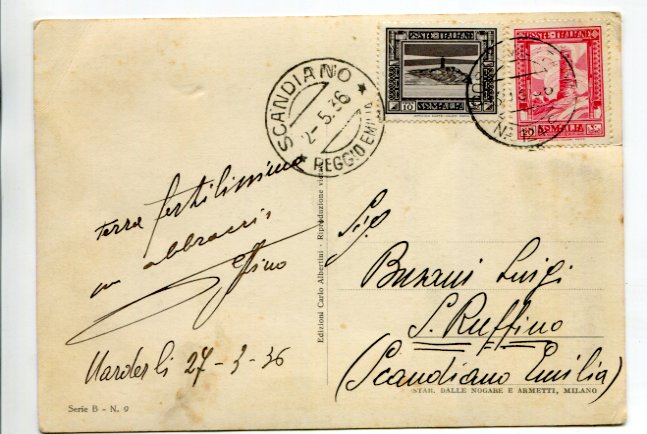 POSTE ITALIANE
10 SOMALIA
POSTE ITALIANE
SOMALIA
SCANDIANO
2-5.36
REGGIO EMILIA
terra fertilissima
un abbraccio
Gino
Uardesli 27-3-36
Serie B - N. 9
Edizioni Carlo Albertini - Riproduzione
Sig.
Luigi
S. Ruffino
(Scandiano Emilia)
STAB. DALLE NOGARE E ARMETTI, MILANO